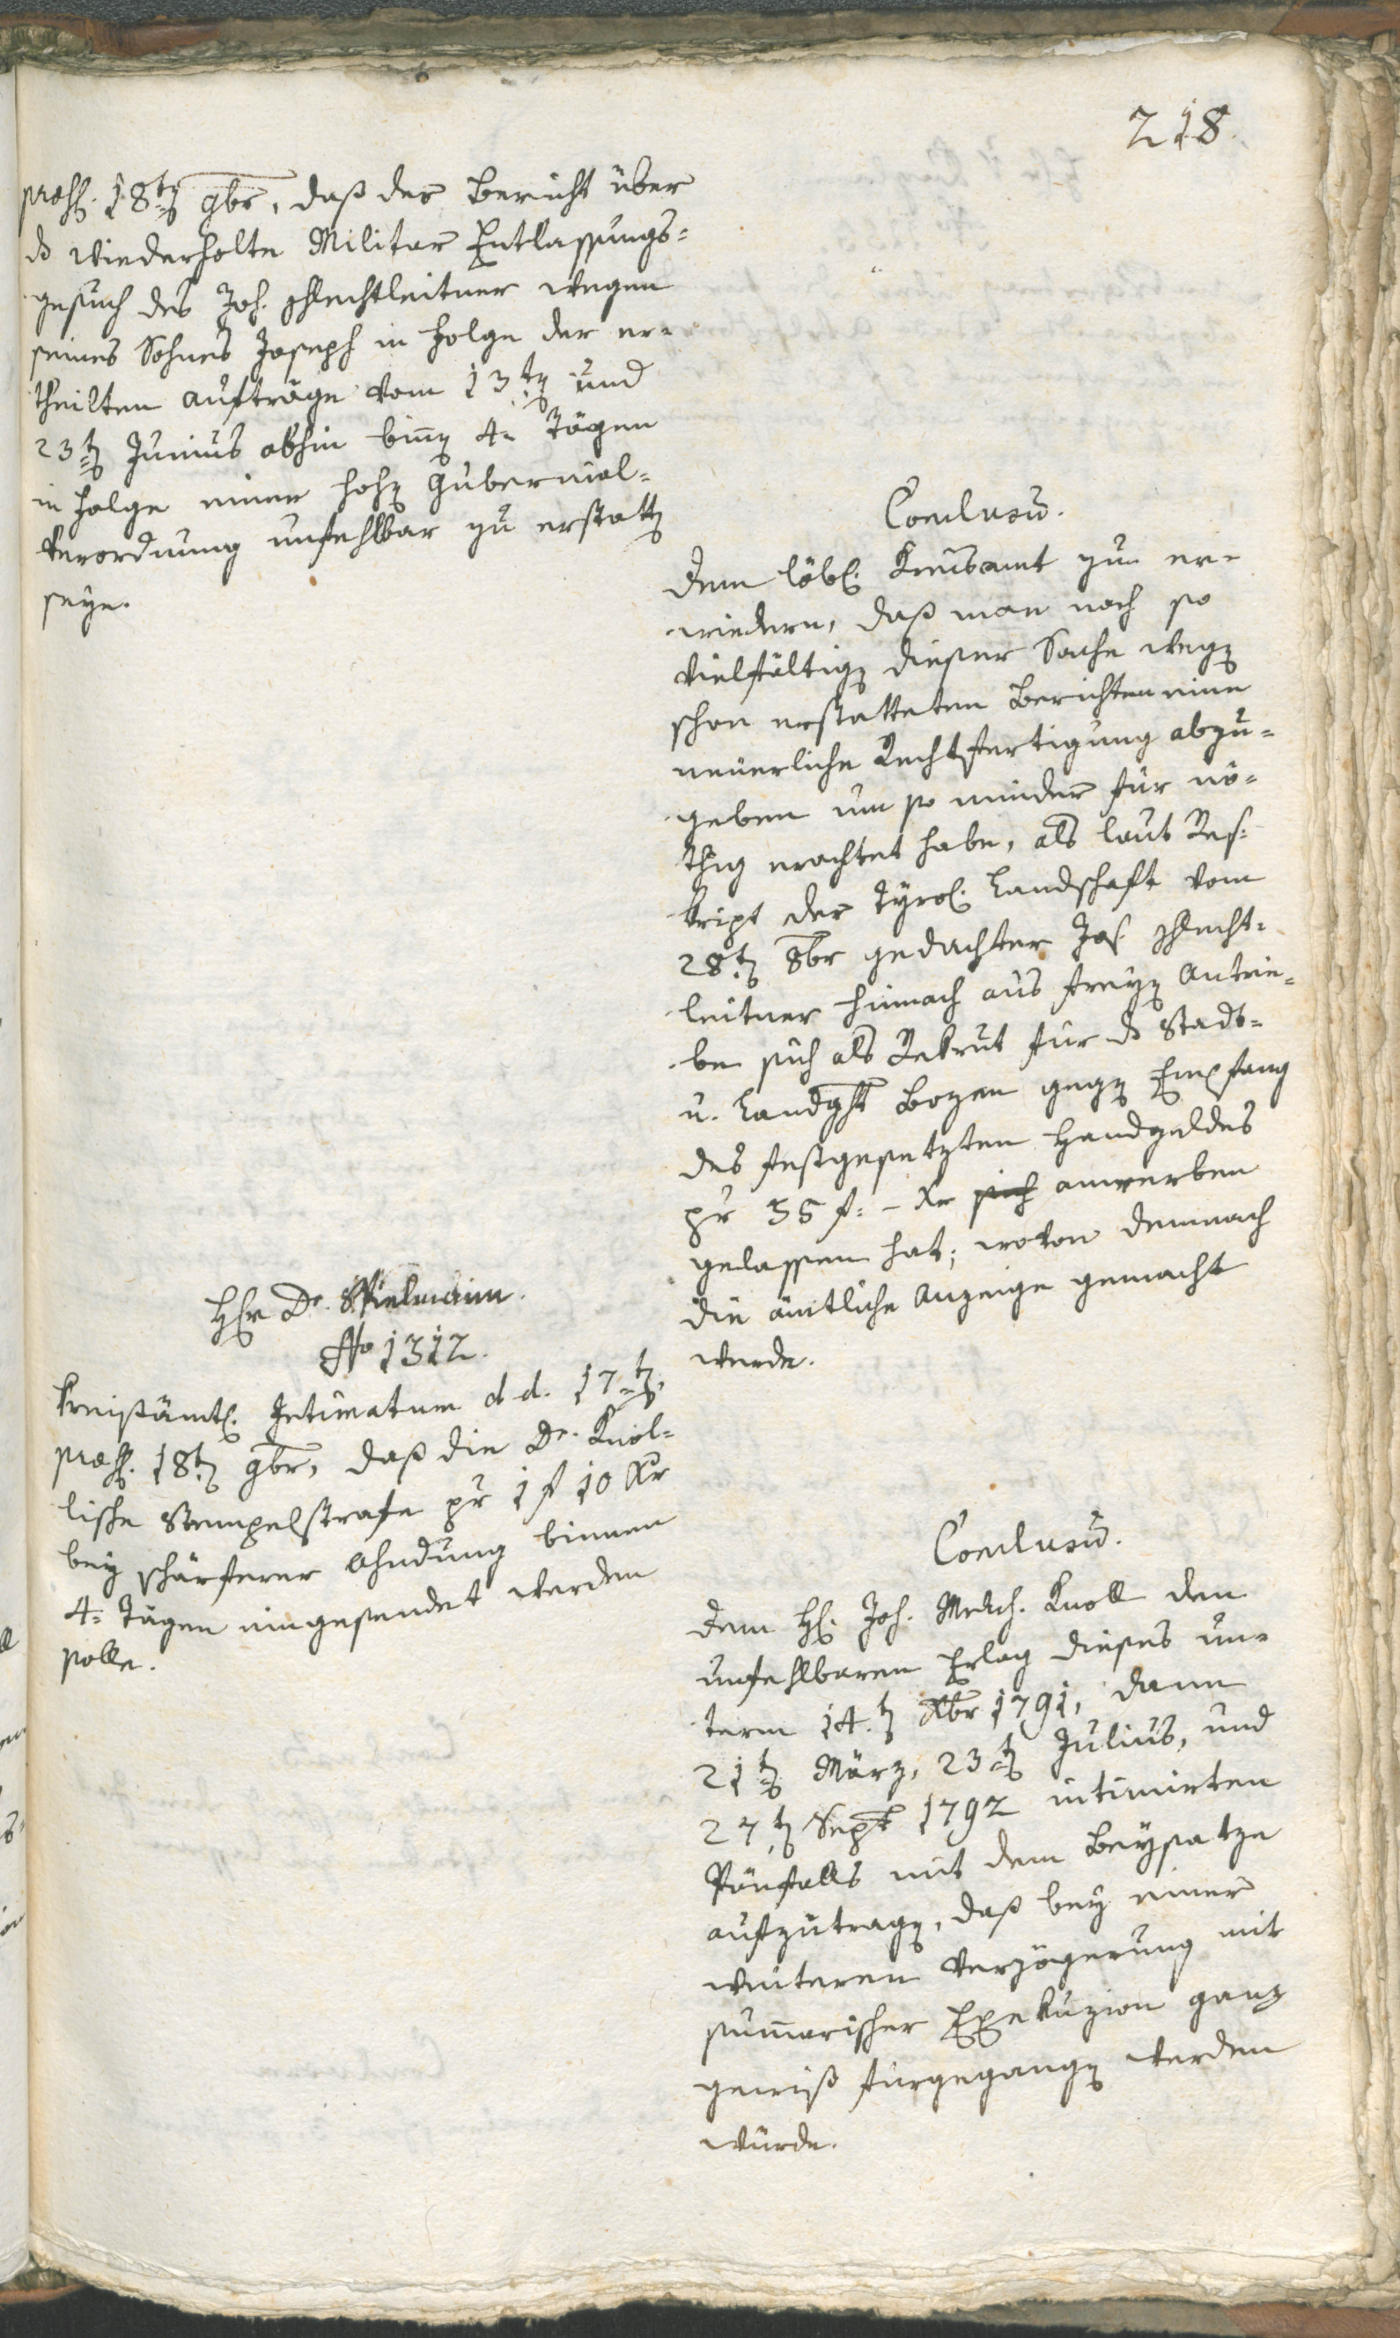 218.
præs. 18ten 9br, daß der Bericht über
ds wiederholte Militar Entlassungs=
gesuch des Joh. Schlechtleitner wegen
seines Sohnes Joseph in Folge der er=
theilten Aufträge vom 13ten und
23ten Junius abhin binen 4= Tägen
in Folge einer hohen Gubernial=
verordnung unfehlbar zu erstatten
seye.
Conclusu.
Dem löbl. Kreisamt zu er=
wiedern, daß man nach so
vielfältigen dieser Sache wegen
schon erstatteten Berichten eine
neuerliche Rechtfertigung abzu=
geben um so minder für nö=
thig erachtet habe, als laut Res=
kript der Tyrol. Landschaft vom
28ten 8br gedachter Jos. Schlecht=
leitner hinnach aus freyen Antrie=
be sich als Rekrut für ds Stadt=
u. Landght Bozen gegen Empfang
des festgesetzten Handgeldes
pr 35 f: - Xr sich anwerben
gelassen hat; wovon demnach
die ämtliche Anzeige gemacht
werde.
Hr Dr. Spielmann.
No 1312.
Kreisämtl. Intimatum d. d. 17ten,
præs. 18ten 9br, daß die Dr. Knol=
lische Stempelstrafe pr 1 f 10 Xr
bey schärferer Ahndung binnen
4= Tägen eingesendet werden
solle.
Conclusu.
Dem H. Joh. Melch. Knoll den
unfehlbaren Erlag dieses un=
term 14.ten Xbr 1791, dann
21ten März, 23ten Julius, und
27ten Sept 1792 intimirten
Pönfalls mit dem Beysatze
aufzutragen, daß bey einer
weiteren Verzögerung mit
sumarischer Exekuzion ganz
gewiß fürgegangen werden
würde.